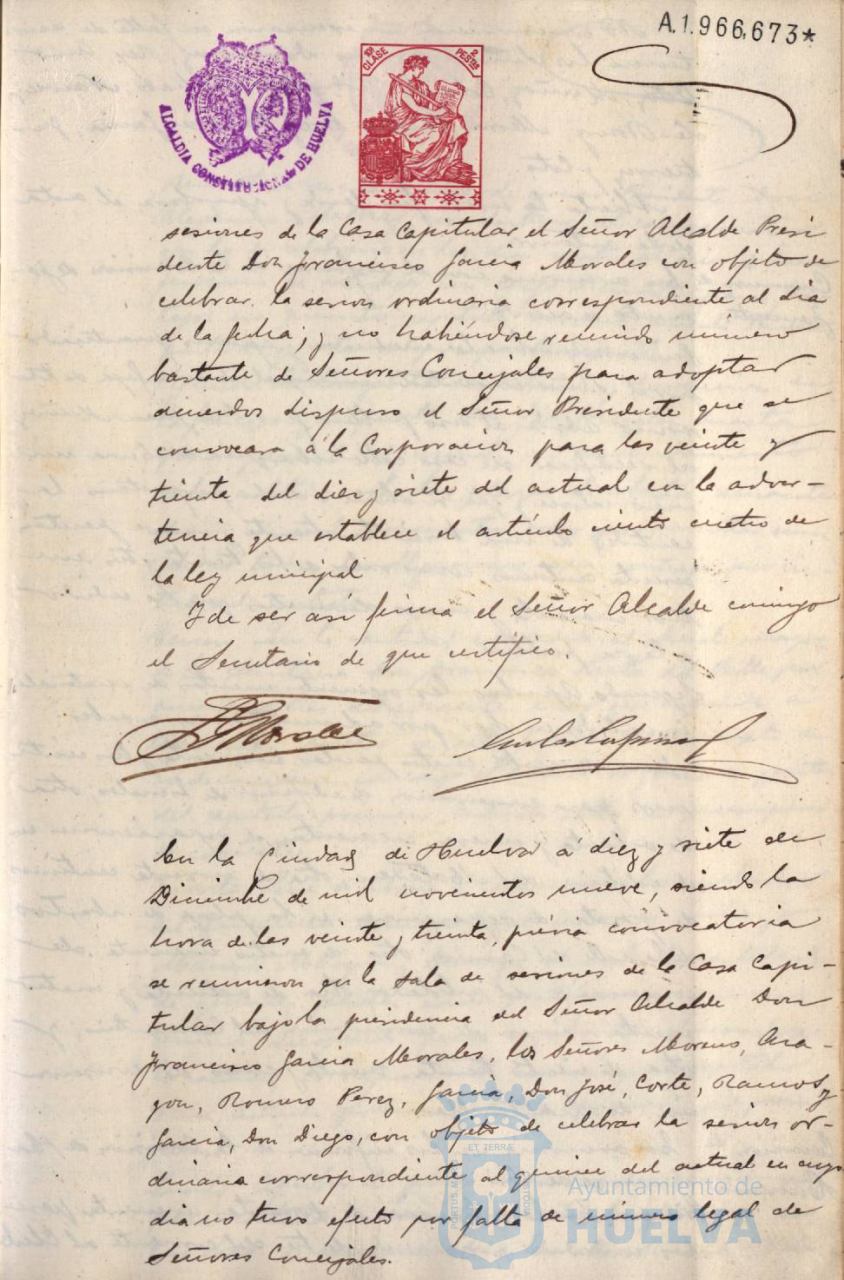 A.1.966,673*
ALCALDIA CONSTITUCIONAL DE HUELVA
10ª CLASE
2 PESTAS
sesiones de la Casa Capitular el Señor Alcalde Presi
dente Don Francisco García Morales con objeto de
celebrar la sesion ordinaria correspondiente al dia
de la fecha; y no habiéndose reunido número
bastante de Señores Concejales para adoptar
acuerdos dispuso el Señor Presidente que se
convocara á la Corporacion para las veinte y
treinta del diez y siete del actual con la adver-
tencia que establece el artículo ciento cuatro de
la ley municipal
Y de ser así firma el Señor Alcalde conmigo
el Secretario de que certifico.
F. G. Morales
En la Ciudad de Huelva á diez y siete de
Diciembre de mil novecientos nueve, siendo la
hora de las veinte y treinta, prévia convocatoria
se reunieron en la sala de sesiones de la Casa Capi-
tular bajo la presidencia del Señor Alcalde Don
Francisco García Morales, los Señores Moreno, Ara-
gon, Romero Perez, García, Don José, Corte, Ramos y
García, Don Diego, con objeto de celebrar la sesion or-
dinaria correspondiente al quince del actual en cuyo
dia no tuvo efecto por falta de número legal de
Señores Concejales.
ET TERRÆ
Ayuntamiento de
HUELVA